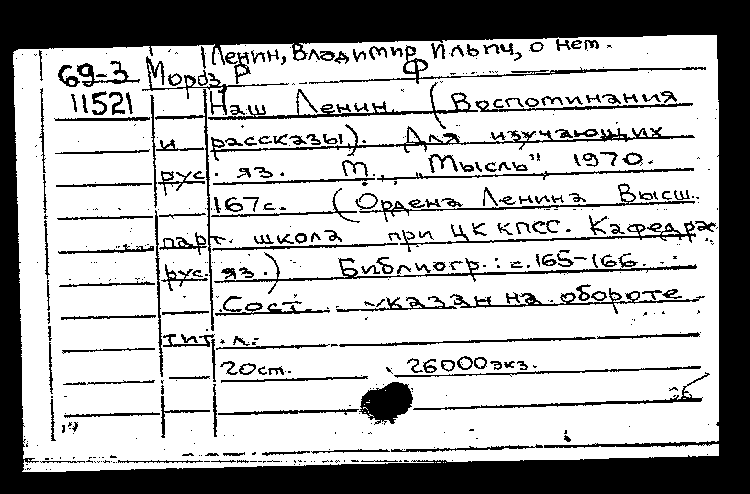 Ленин, Владимир Ильич, о нем.
69-3 Мороз, Р Ф
11521 Наш Ленин (Воспоминания
и рассказы). Для изучающих
рус. яз. М., „Мысль", 1970.
167с. (Ордена Ленина Высш.
парт. школа при ЦК КПСС. Кафедра
рус. яз.) Библиогр.: с. 165-166.
Сост. указан на обороте
тит. л.
20см. 26000 экз.
26